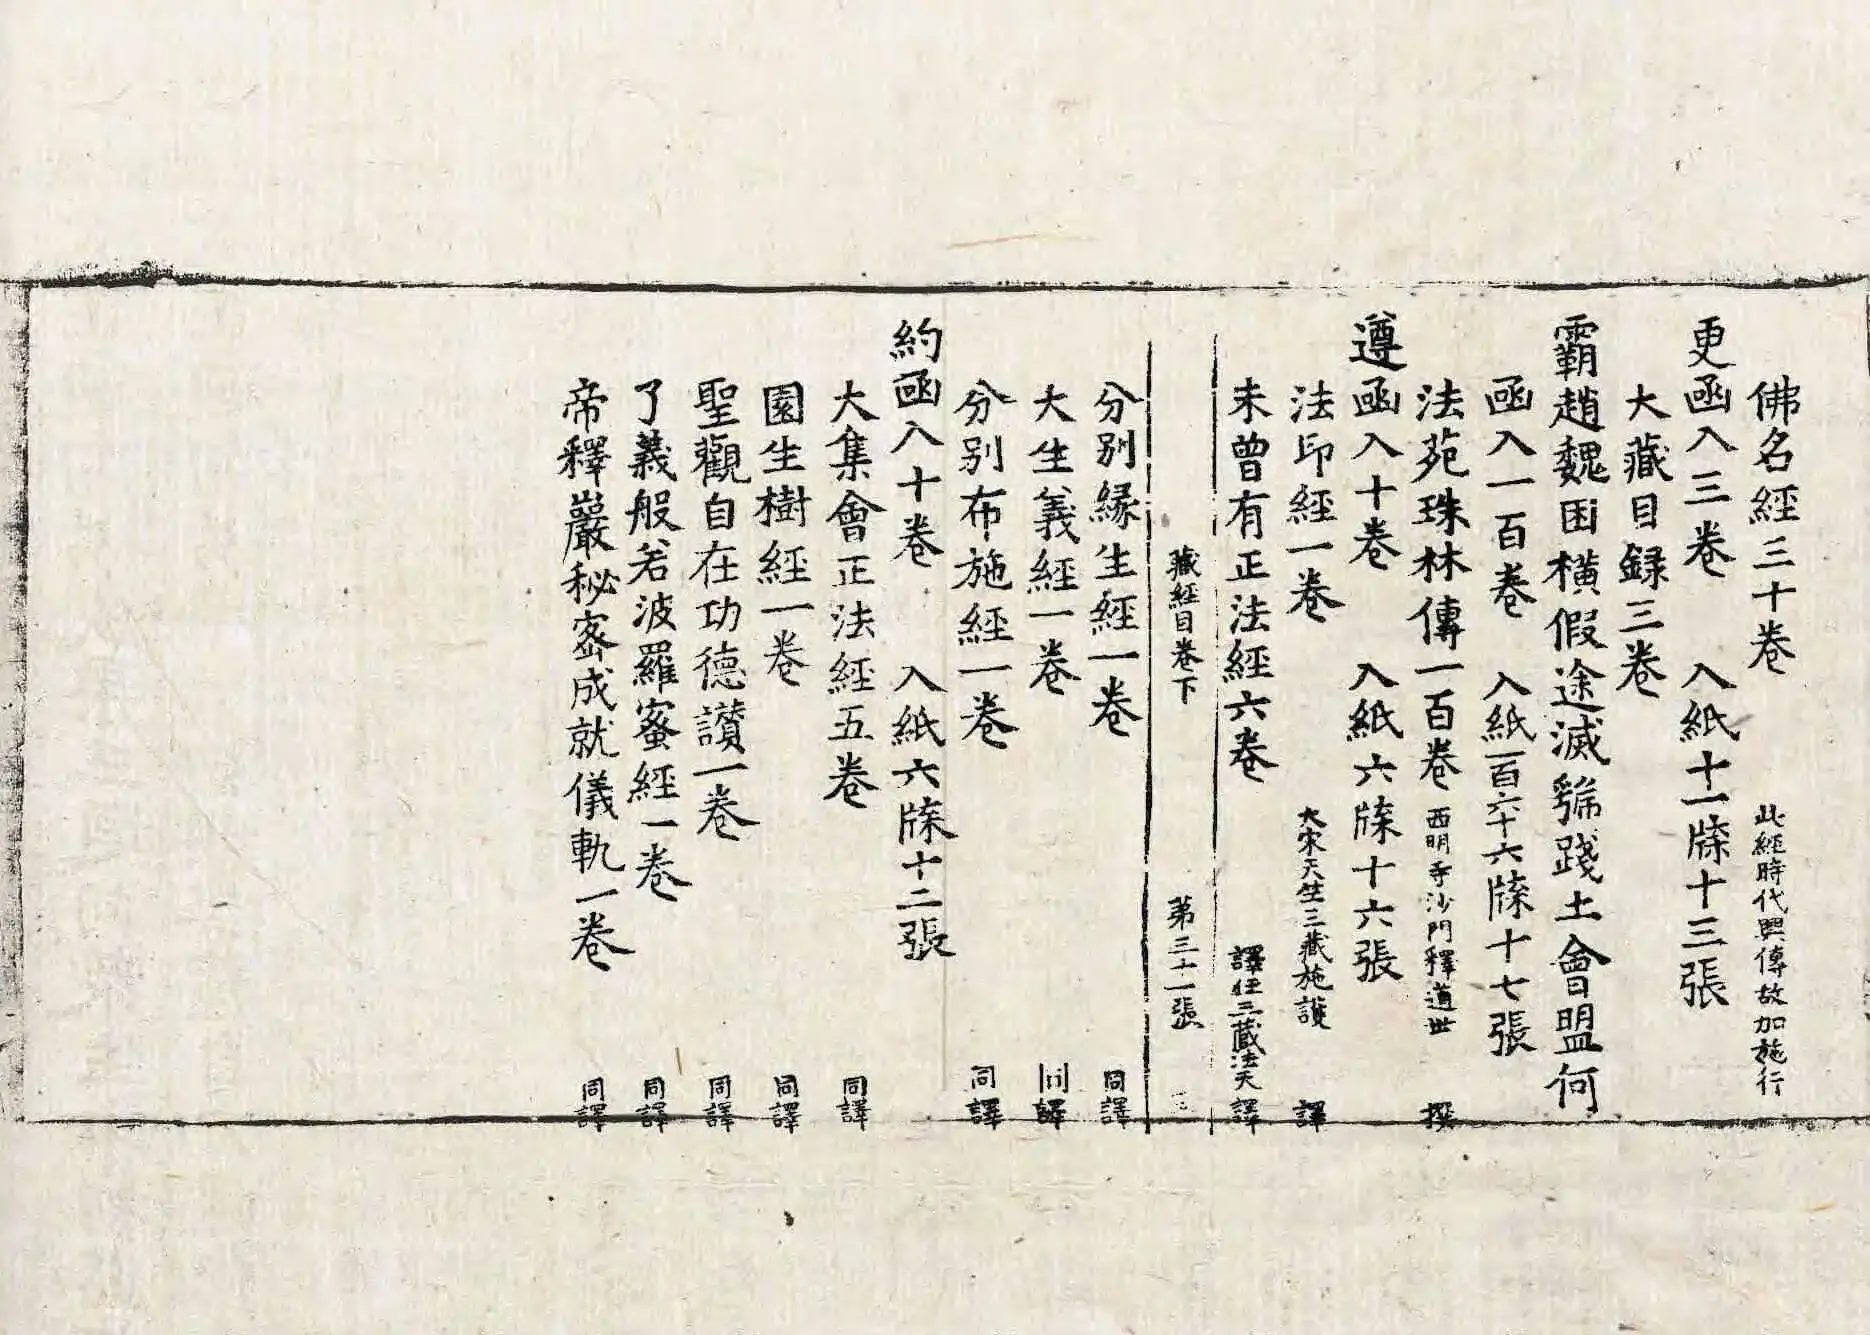 佛名經三十卷 此經時代興傳故加施行
更函入三卷 入紙十一牒十三張
大藏目録三卷
霸趙魏困橫假途滅虢踐土會盟何
函入一百卷 入紙一百六十六牒十七張
法苑珠林傳一百卷 西明寺沙門釋道世 撰
遵函入十卷 入紙六牒十六張
法印經一卷 大宋天生三藏施護 譯
未曾有正法經六卷 譯經三藏法天譯
藏經目卷下 第三十一張
分別縁生經一卷 同譯
大生義經一卷 同譯
分別布施經一卷 同譯
約函入十卷 入紙六牒十二張
大集會正法經五卷 同譯
園生樹經一卷 同譯
聖觀自在功德讃一卷 同譯
了義般若波羅蜜經一卷 同譯
帝釋嚴秘密成就儀軌一卷 同譯